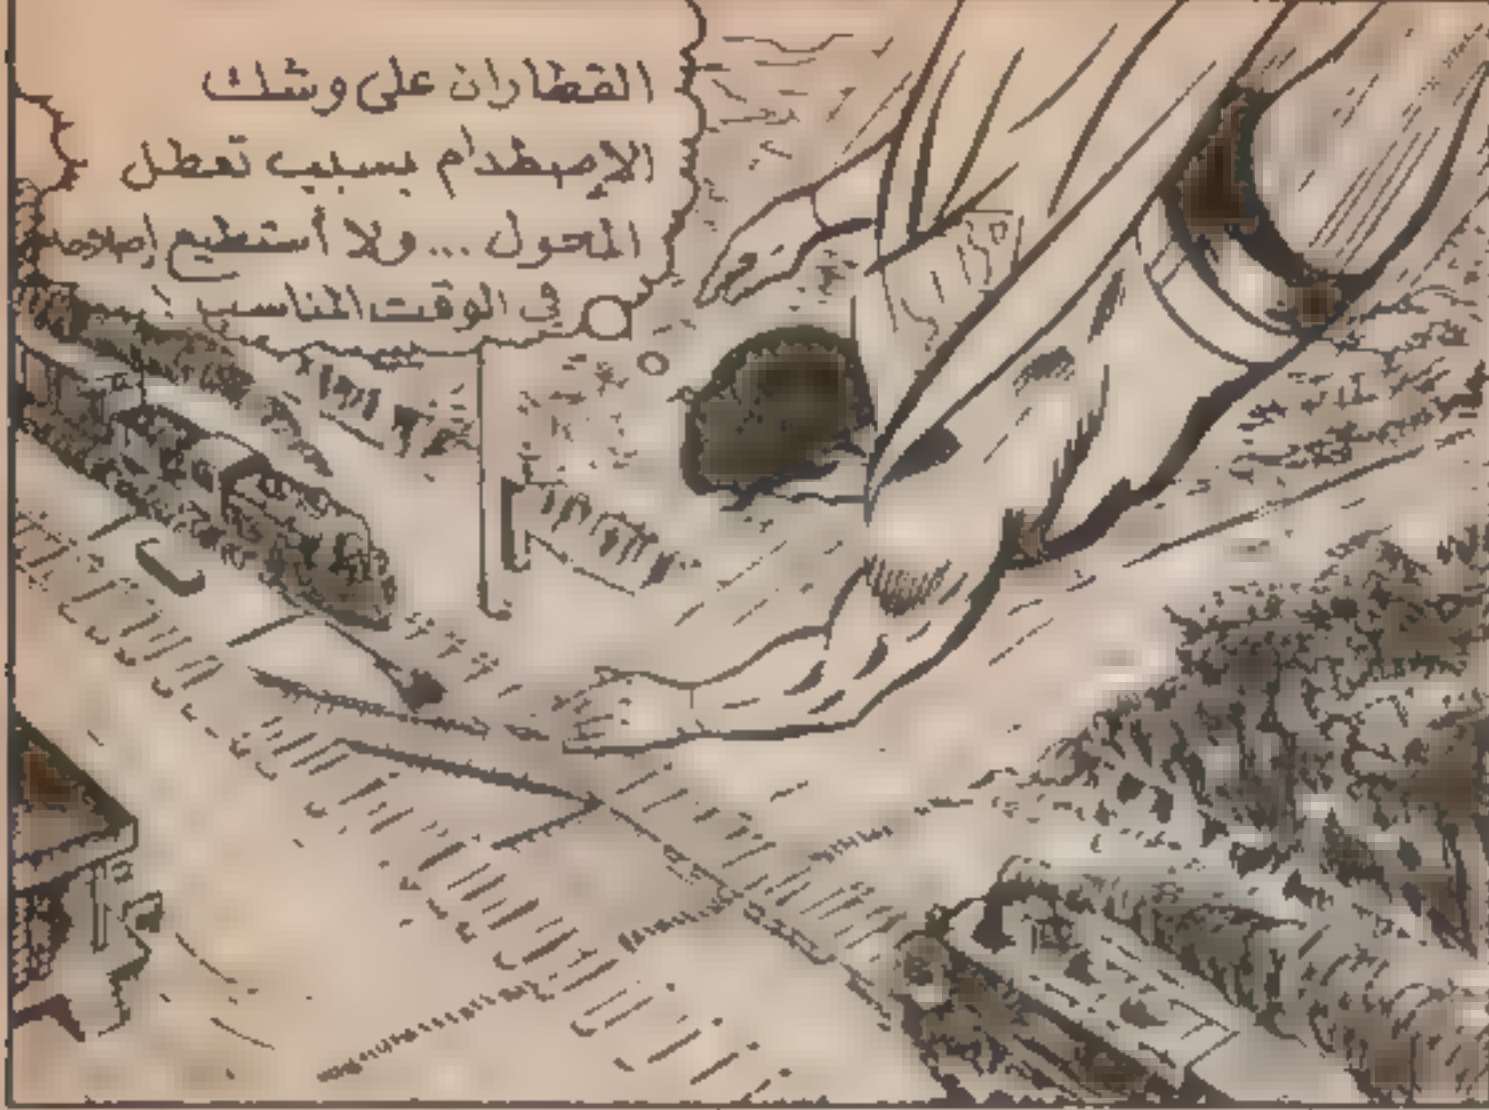 القطاران على وشك
الإصطدام بسبب تعطل
المحول ... ولا أستطيع إصلاحه
في الوقت المناسب !